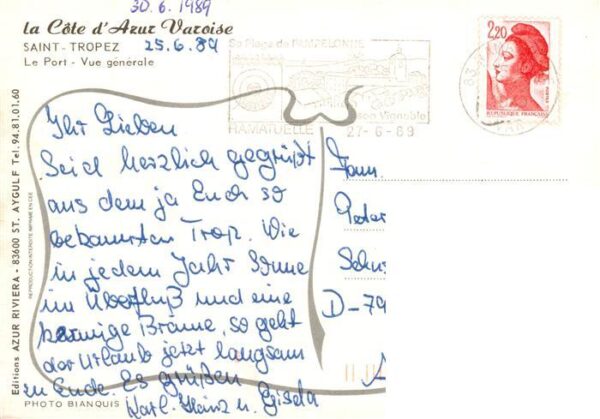 30.6.1989
la Côte d'Azur Varoise
SAINT-TROPEZ 25.6.89
Le Port - Vue générale
Sa Plage de PAMPELONNE
Son Vignoble
RAMATUELLE 27-6-89
2,20
REPUBLIQUE FRANÇAISE
Ihr Lieben.
Seid herzlich gegrüßt
aus dem ja Euch so
bekannten Trop. Wie
in jedem Jahr Sonne
im Überfluß und eine
Bräune, so geht
der Urlaub jetzt langsam
zu Ende. Es grüßen
Karl-Heinz u. Gisela
Fam.
Peter
D-79
Editions AZUR RIVIERA - 83600 ST. AYGULF Tel. 94.81.01.60
REPRODUCTION INTERDITE IMPRIME EN CEE
PHOTO BIANQUIS